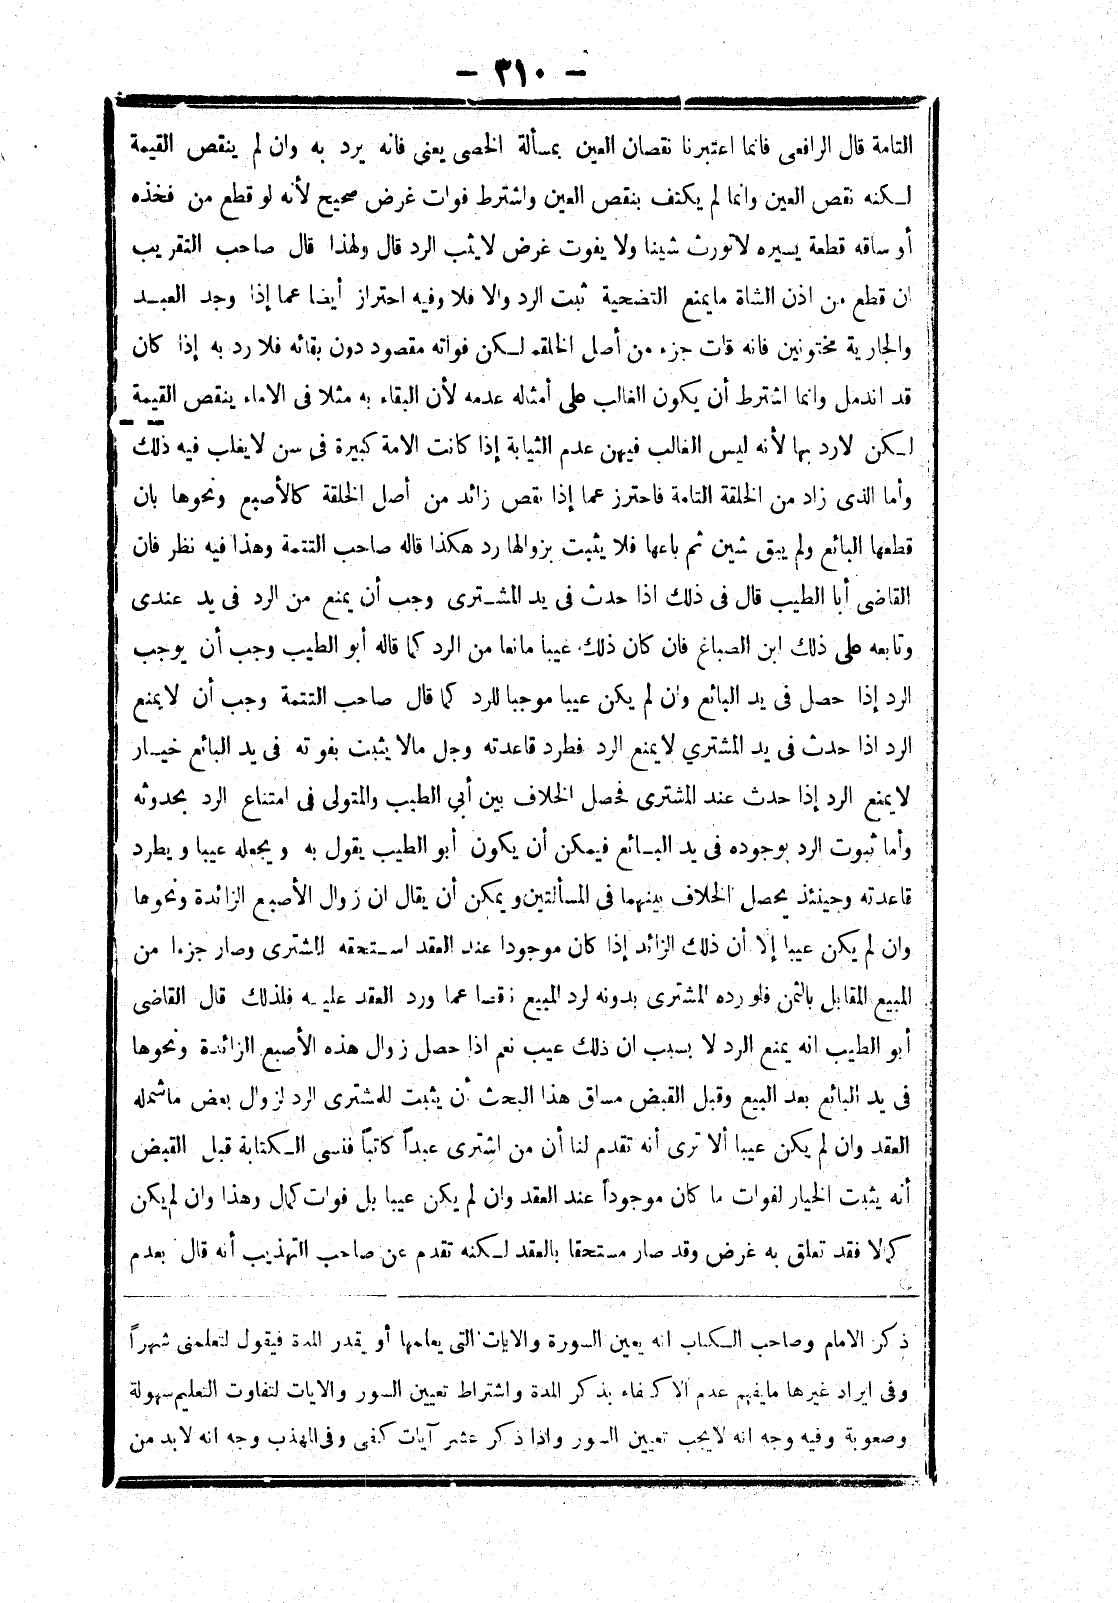 - ٣١٠ -
التامة قال الرافعى فانما اعتبرنا نقصان العين بمسألة الخصى يعنى فانه يرد به وان لم ينقص القيمة
لكنه نقص العين وانما لم يكتف بنقص العين واشترط فوات غرض صحيح لأنه لو قطع من فخذه
أو ساقه قطعة يسيره لاتورث شينا ولا يفوت غرض لايثب الرد قال ولهذا قال صاحب التقريب
ان قطع من اذن الشاة مايمنع التضحية ثبت الرد والا فلا وفيه احتراز أيضا عما إذا وجد العبد
والجارية مختونين فانه فات جزء من أصل الخلقه لكن فواته مقصود دون بقائه فلا رد به إذا كان
قد اندمل وانما اشترط أن يكون الغالب على أمثاله عدمه لأن البقاء به مثلا فى الاماء ينقص القيمة
لكن لارد بها لأنه ليس الغالب فيهن عدم الثيابة إذا كانت الامة كبيرة فى سن لايغلب فيه ذلك
وأما الذى زاد من الخلقة التامة فاحترز عما إذا نقص زائد من أصل الخلقة كالأصبع ونحوها بان
قطعها البائع ولم يبق شين ثم باعها فلا يثبت بزوالها رد هكذا قاله صاحب التتمة وهذا فيه نظر فان
القاضى أبا الطيب قال فى ذلك اذا حدث فى يد المشترى وجب أن يمنع من الرد فى يد عندى
وتابعه على ذلك ابن الصباغ فان كان ذلك عيبا مانعا من الرد كما قاله أبو الطيب وجب أن يوجب
الرد إذا حصل فى يد البائع وان لم يكن عيبا موجبا للرد كما قال صاحب التتمة وجب أن لايمنع
الرد اذا حدث فى يد المشتري لايمنع الرد فطرد قاعدته وجل مالا يثبت بفوته فى يد البائع خيار
لا يمنع الرد إذا حدث عند المشترى فحصل الخلاف بين أبي الطيب والمتولى فى امتناع الرد بحدوثه
وأما ثبوت الرد بوجوده فى يد البائع فيمكن أن يكون أبو الطيب يقول به ويجعله عيبا ويطرد
قاعدته وحينئذ يحصل الخلاف بينهما فى المسألتين ويمكن أن يقال ان زوال الأصبع الزائدة ونحوها
وان لم يكن عيبا إلا أن ذلك الزائد إذا كان موجودا عند العقد استحقه المشترى وصار جزءا من
المبيع المقابل بالثمن فلو رده المشترى بدونه لرد المبيع نقصا عما ورد العقد عليه فلذلك قال القاضى
أبو الطيب انه يمنع الرد لا بسبب ان ذلك عيب نعم اذا حصل زوال هذه الأصبع الزائدة ونحوها
فى يد البائع بعد البيع وقبل القبض مساق هذا البحث أن يثبت للمشترى الرد لزوال بعض ماشمله
العقد وان لم يكن عيبا ألا ترى أنه تقدم لنا أن من اشترى عبداً كاتباً فنسى الكتابة قبل القبض
أنه يثبت الخيار لفوات ما كان موجوداً عند العقد وان لم يكن عيبا بل فوات كمال وهذا وان لم يكن
كمالا فقد تعلق به غرض وقد صار مستحقا بالعقد لكنه تقدم عن صاحب التهذيب أنه قال بعدم
ذكر الامام وصاحب الكتاب انه يعين السورة والايات التى يعلمها أو يقدر المدة فيقول لتعلمنى شهراً
وفى ايراد غيرها مايفهم عدم الاكتفاء بذكر المدة واشتراط تعيين السور والايات لتفاوت التعليم سهولة
وصعوبة وفيه وجه انه لايجب تعيين السور واذا ذكر عشر آيات كفى وفى المهذب وجه انه لابد من